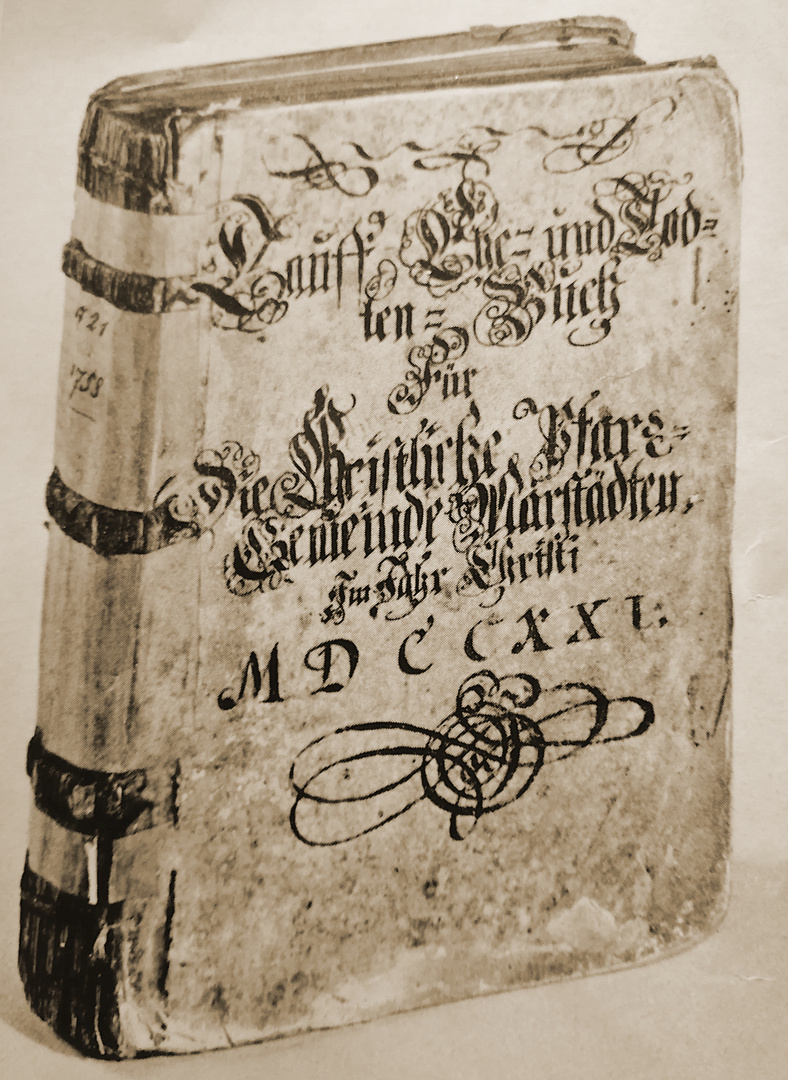 Tauff, Ehe= und Tod=
ten= Buch
Für
Die Christliche Pfarr=
Gemeinde Marstädten,
Im Jahr Christi
MDCCXXI.